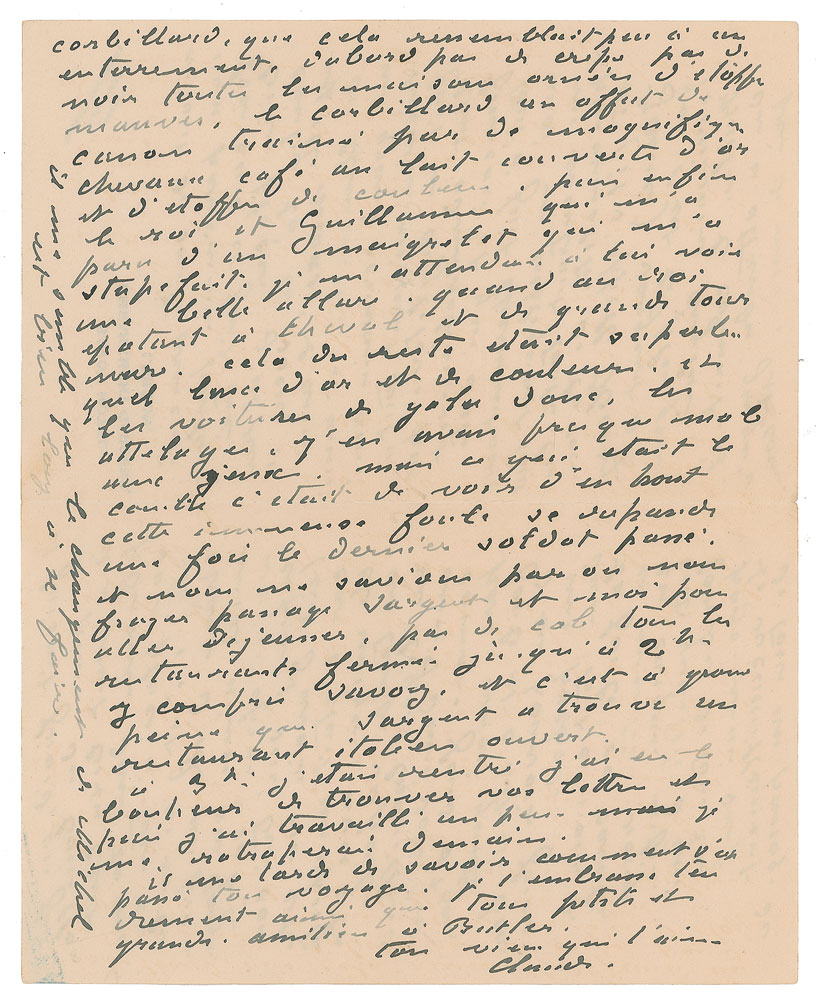 corbillard, que cela ressemblait peu à un
enterrement, d'abord pas de crêpe pas de
noir toutes les maisons ornées d'étoffe
mauves, le corbillard un affut de
canon traîné par de magnifiques
chevaux café au lait couverts d'or
et d'étoffe de couleur. puis enfin
le roi et Guillaume qui m'a
paru d'un maigrelet qui m'a
stupéfait. je m'attendais à lui voir
une belle allure. quand au roi
épatant à cheval et de grande tour
nure. cela du reste était superbe.
quel luxe d'or et de couleurs. et
les voitures de gala donc, les
attelages, j'en avais presque mal
aux yeux. mais ce qui était le
comble c'était de voir d'en haut
cette immense foule se répandre
une fois le dernier soldat passé.
et nous ne savions par où nous
frayer passage Sargent et moi pour
aller déjeuner, pas de cab tous les
restaurants fermés jusqu'à 2 h.
y compris Savoy. et c'est à grand
peine que Sargent a trouvé un
restaurant italien ouvert.
à 3 h. j'étais rentré j'ai eu le
bonheur de trouver vos lettres et
puis j'ai travaillé un peu mais je
me ratraperai demain.
il me tarde de savoir comment s'est
passé ton voyage. je t'embrasse ten
drement ainsi que tous petits et
grands. amitiés à Butler.
ton vieux qui t'aime
Claude.
il me semble que le changement de Michel
est bien long à se faire.